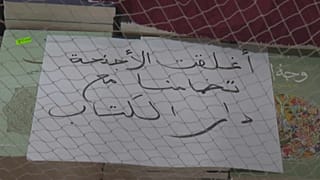 أغلقت الأجنحة
تضامنا مع
دار الكتاب